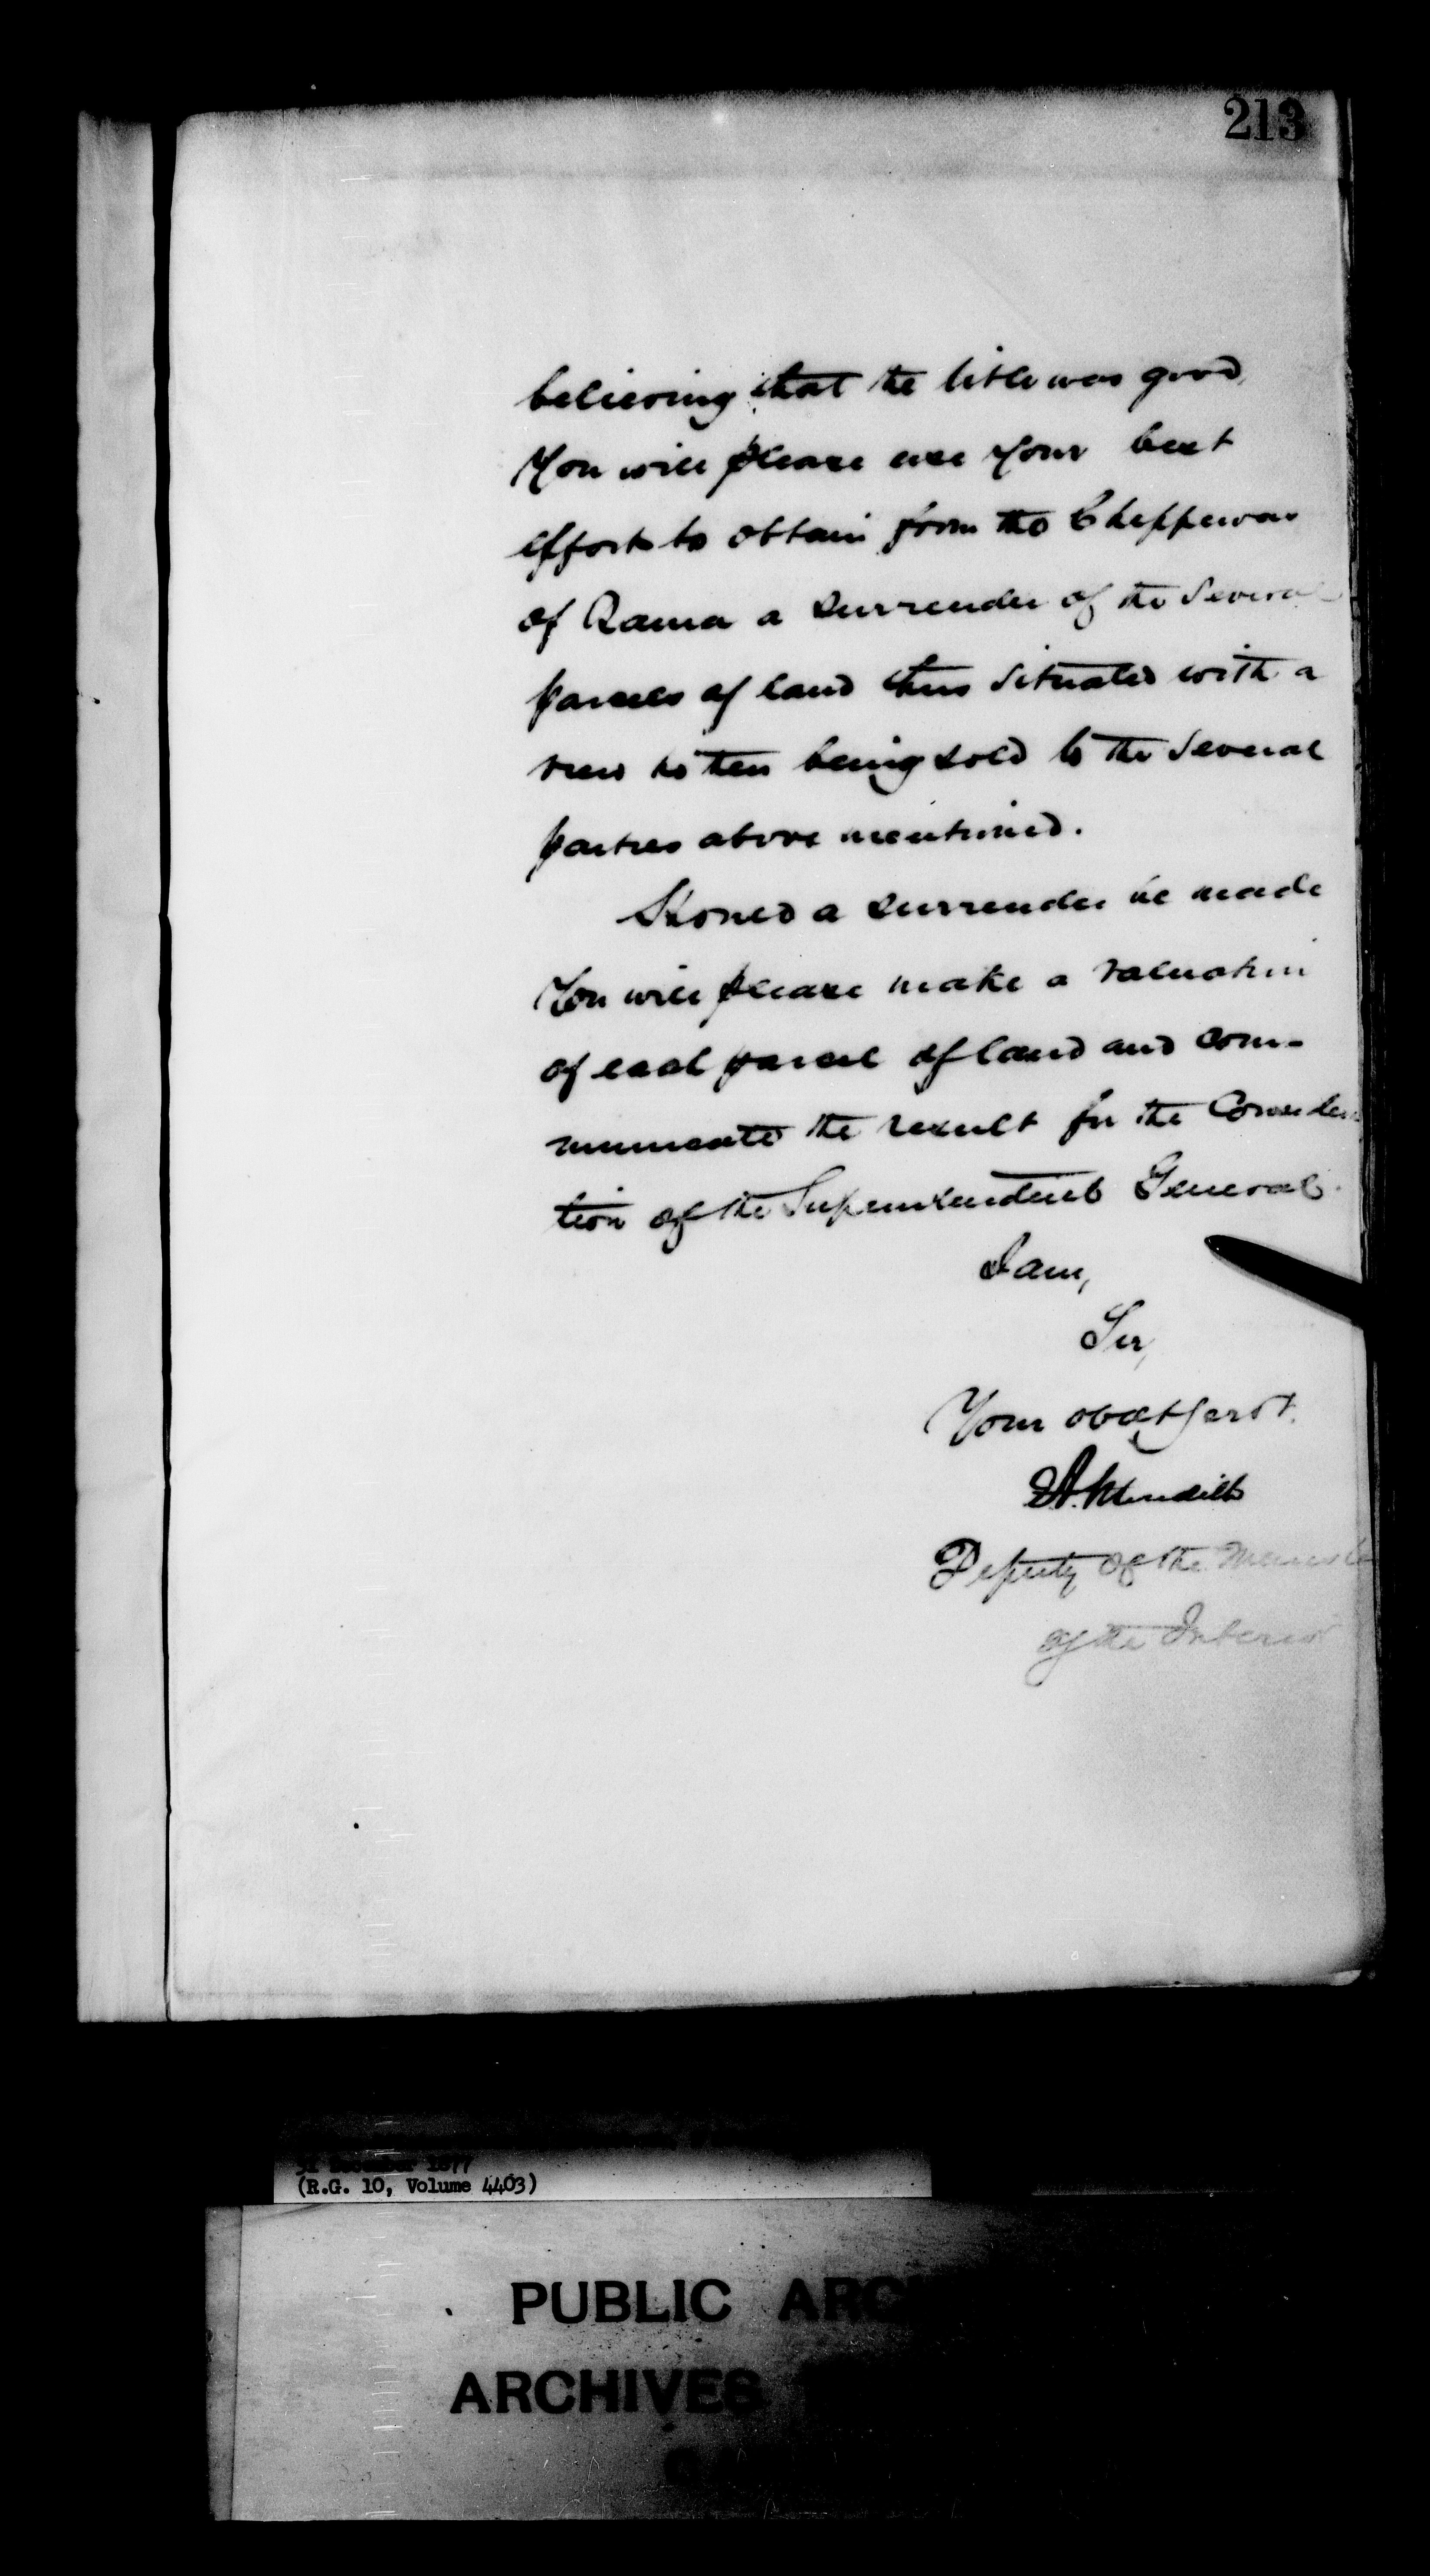 213
believing that the title was good.
You will please use your best
efforts to obtain from the Chippewas
of Rama a surrender of the several
parcels of land thus situated with a
view to their being sold to the several
parties above mentioned.
Should a surrender be made
You will please make a valuation
of each parcel of land and com-
municate the result for the Considera
tion of the Superintendent General.
I am,
Sir,
Your obedt Servt.
EA. Meredith
Deputy of the Minister
of the Interior
31 December 1877
(R.G. 10, Volume 4403)
PUBLIC ARC
ARCHIVES